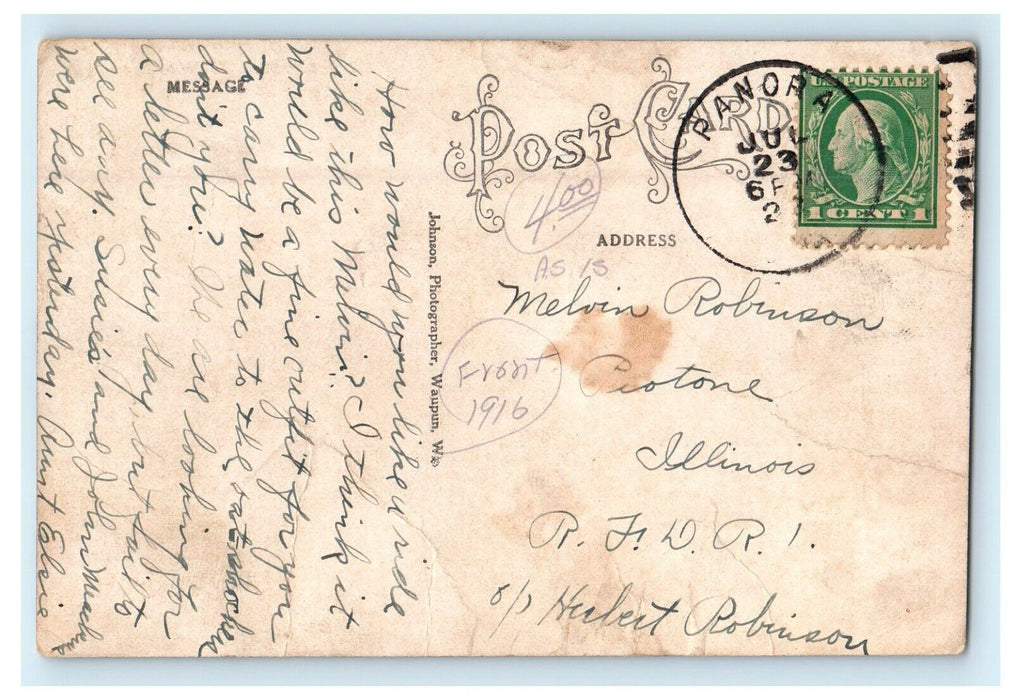 MESSAGE
How would you like a ride
like this Malvin? I think it
would be a fine outfit for you
to cary water to the oatshocken
dont you? We are looking for
a letter every day but fail to
see any. Susies and John
were here yesterday. Aunt Elsie
Johnson, Photographer, Waupun, Wis
POST CARD
4.00
AS IS
Front
1916
ADDRESS
PANORA
JUL
23
6 P
2
U.S. POSTAGE
1 CENT 1
Melvin Robinson
Peotone
Illinois
R. F. D. R. 1.
c/o Herbert Robinson